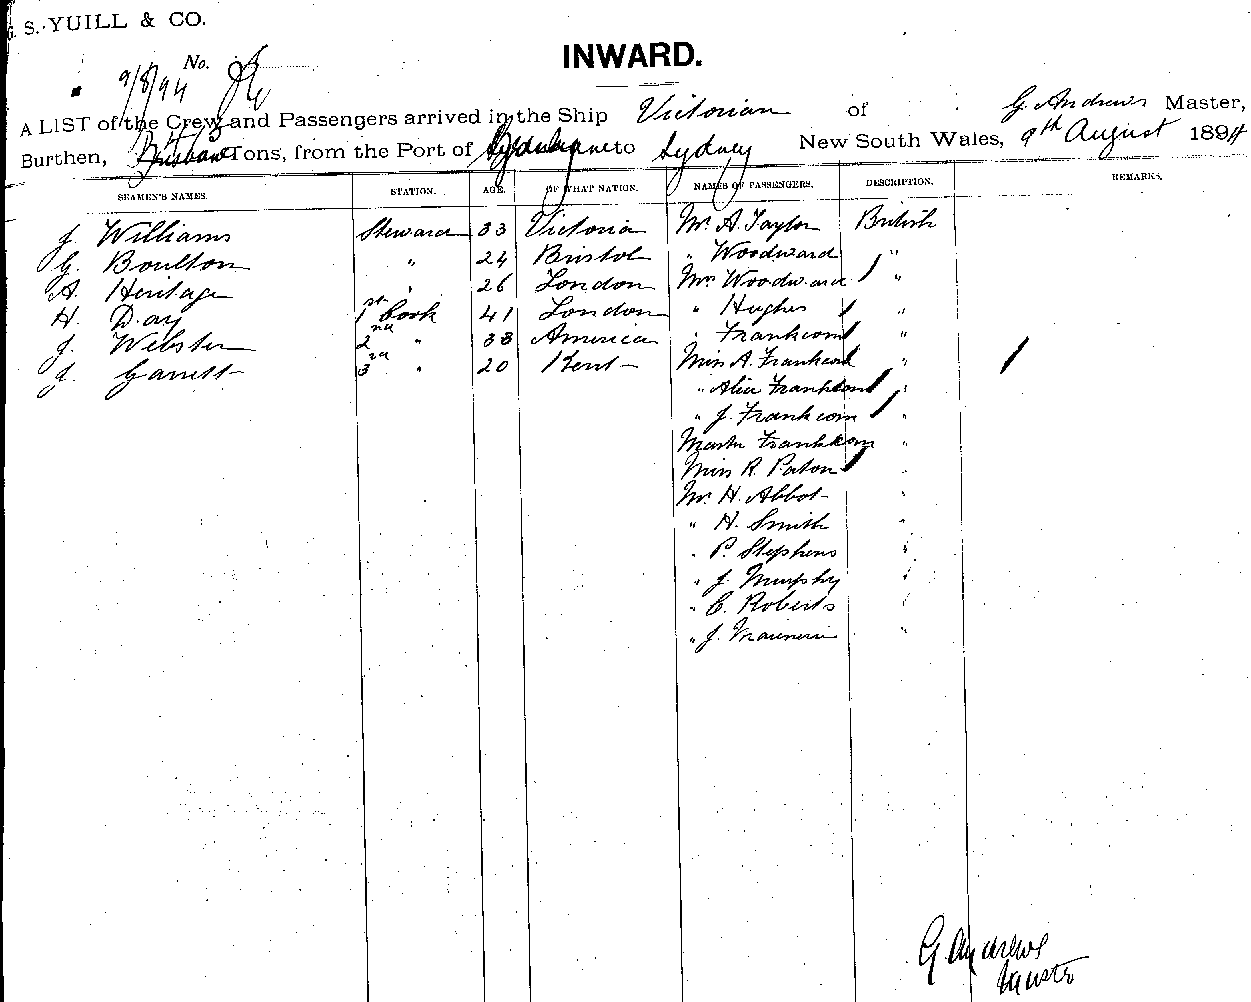 G. S. YUILL & CO.
INWARD.
No.
9/8/94
A LIST of the Crew and Passengers arrived in the Ship Victorian of G. Andrews Master,
Burthen, Tons, from the Port of to Sydney New South Wales, 9th August 1894
SEAMEN'S NAMES. STATION. AGE. OF WHAT NATION. NAMES OF PASSENGERS. DESCRIPTION. REMARKS.
J. Williams Steward 33 Victoria Mr A. Taylor British
G. Boulton " 24 Bristol " Woodward "
A. Heritage " 26 London Mrs Woodward "
H. Day 1st Cook 41 London " Hughes "
J. Webster 2nd " 38 America " Frankcom "
J. Garrett 3rd " 20 Kent Miss A. Frankcom "
" Alice Frankcom "
" J. Frankcom "
Master Frankcom "
Miss R. Paton "
Mr H. Abbot "
" H. Smith "
" P. Stephens "
" J. Murphy "
" C. Roberts "
" J. "
G Andrews
Master